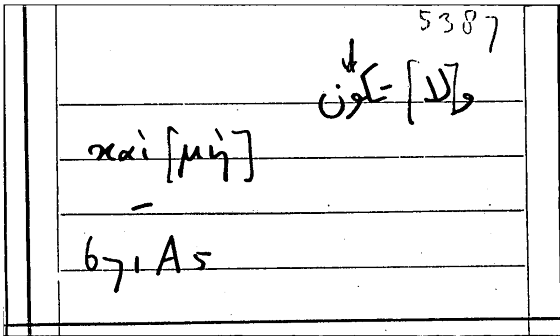 5387
و[لا] تكون
καὶ [μὴ]
671 A 5